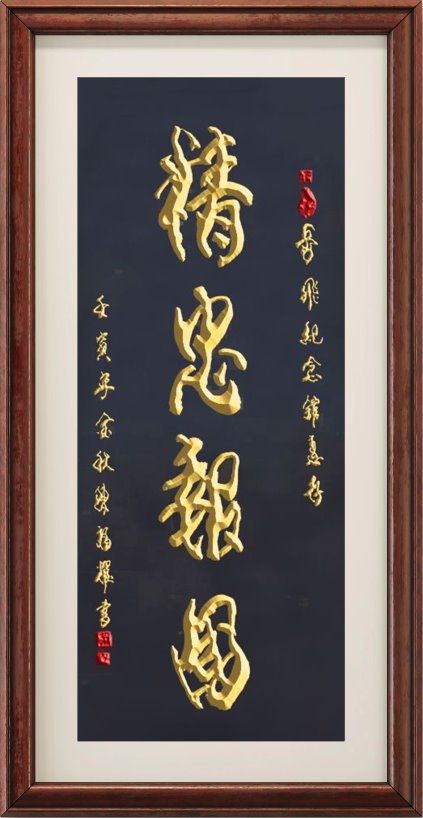 岳飛紀念館惠存
精忠報國
壬寅年金秋陳耀書